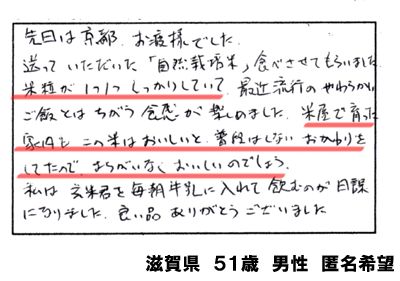 先日は京都 お疲様でした。
送っていただいた「自然栽培米」食べさせてもらいました
米粒が1つ1つしっかりしていて、最近流行のやわらかい
ご飯とはちがう食感が楽しめました。米屋で育った
家内も この米はおいしいと、普段はしない おかわりを
してたので、まちがいなくおいしいのでしょう。
私は 玄米君を毎朝牛乳に入れて飲むのが日課
になりました。良い品 ありがとうございました
滋賀県 51歳 男性 匿名希望